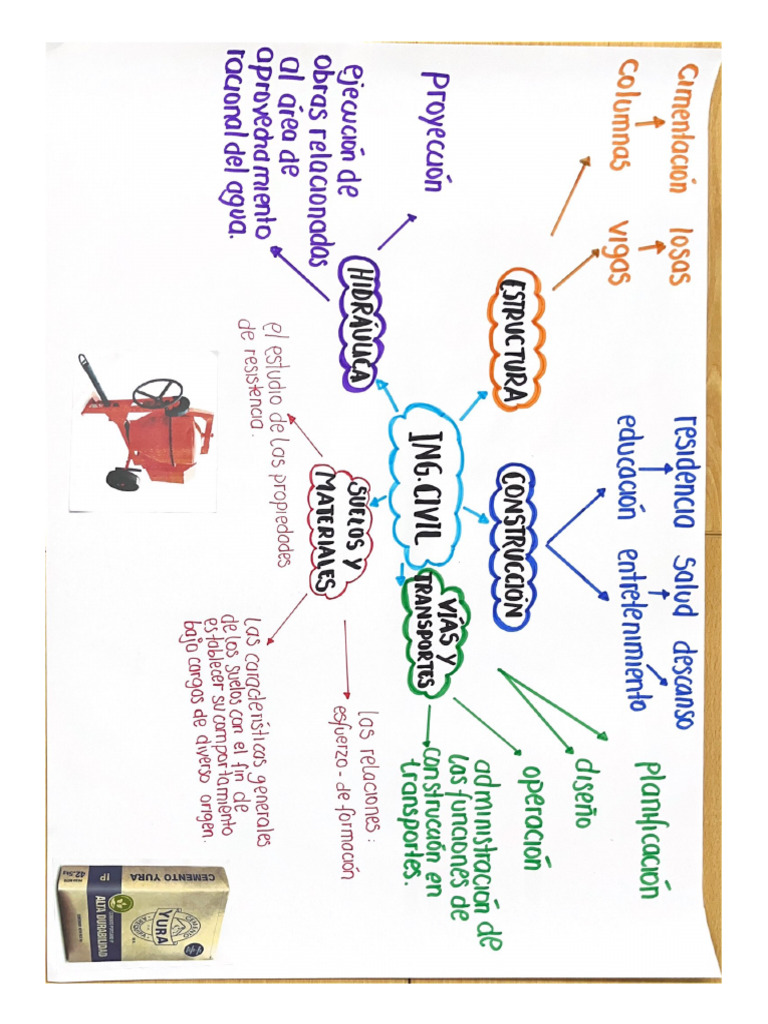 ING. CIVIL
ESTRUCTURA
Cimentación
columnas
losas
vigas
CONSTRUCCIÓN
residencia
educación
Salud
entretenimiento
descanso
VÍAS Y
TRANSPORTES
planificación
diseño
operación
administración de
las funciones de
construcción en
transportes.
SUELOS Y
MATERIALES
las relaciones:
esfuerzo-de-formación
las características generales
de los suelos con el fin de
establecer su comportamiento
bajo cargas de diverso origen.
el estudio de las propiedades
de resistencia.
HIDRÁULICA
Proyección
ejecución de
obras relacionadas
al área de
aprovechamiento
racional del agua.
CEMENTO YURA
42.5kg
IP
YURA
ALTA DURABILIDAD